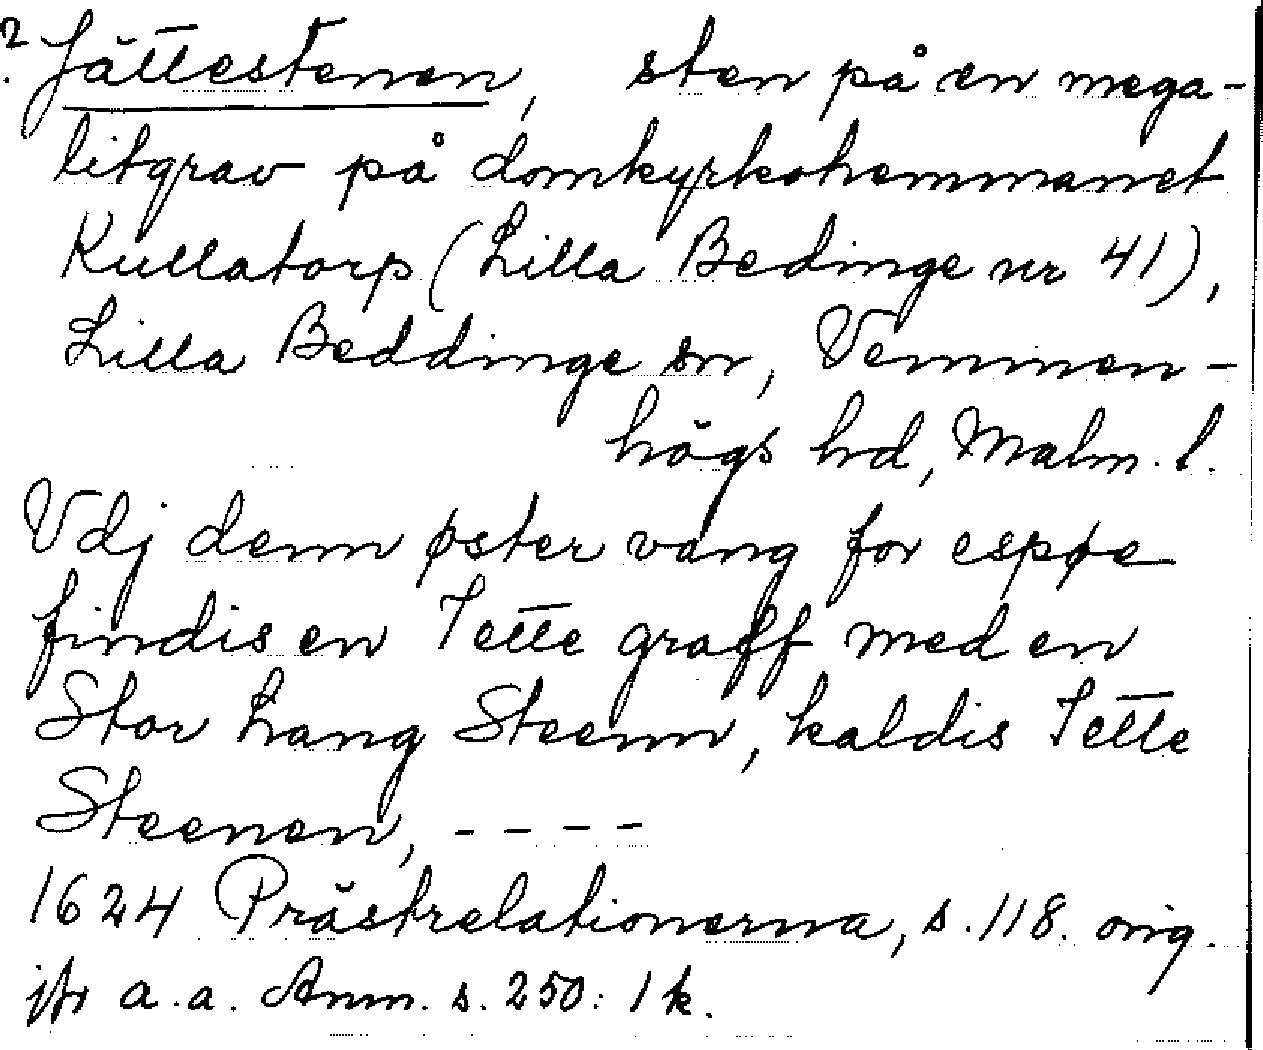 ? Jättestenen, sten på en mega-
litgrav på domkyrkohemmanet
Kullatorp (Lilla Bedinge nr 41),
Lilla Beddinge sn, Vemmen-
högs hd, Malm. l.
Vdj denn øster vang for espøe
findis en Iette graff med en
Stor Lang Steenn, kaldis Iette
Steenen, - - - -
1624 Prästrelationerna, s. 118. orig.
jfr a. a. Anm. s. 250: 1 k.